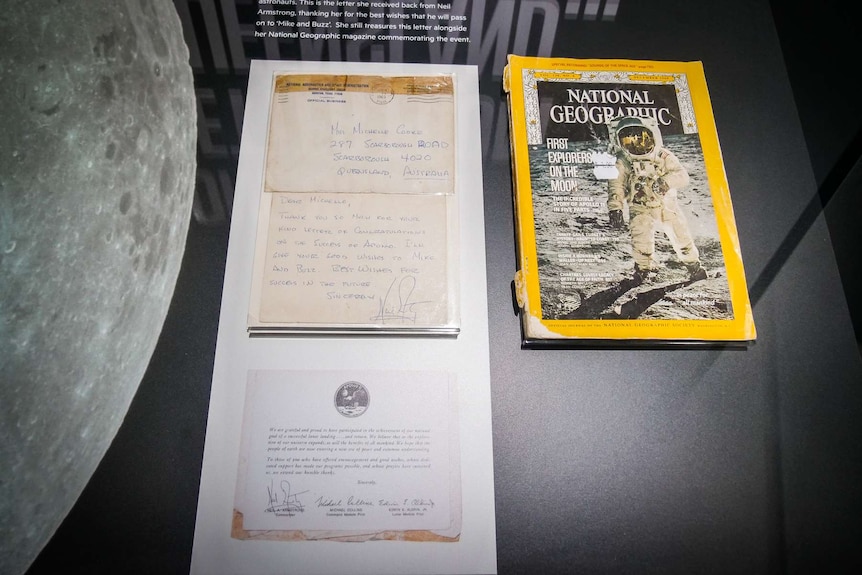 astronauts. This is the letter she received back from Neil
Armstrong, thanking her for the best wishes that he will pass
on to 'Mike and Buzz'. She still treasures this letter alongside
her National Geographic magazine commemorating the event.
OFFICIAL BUSINESS
MISS MICHELLE
297 SCARBOROUGH ROAD
SCARBOROUGH 4020
QUEENSLAND, AUSTRALIA
DEAR MICHELLE,
THANK YOU SO MUCH FOR YOUR
KIND LETTER OF CONGRATULATIONS
ON THE SUCCESS OF APOLLO. I'LL
PASS YOUR GOOD WISHES TO MIKE
AND BUZZ. BEST WISHES FOR
SUCCESS IN THE FUTURE
SINCERELY
We are grateful and proud to have participated in the achievement of our national
goal of a successful lunar landing . . . and return. We believe that as the explora-
tion of our universe expands, so will the benefits of all mankind. We hope that the
people of earth are now entering a new era of peace and common understanding.
To those of you who have offered encouragement and good wishes, whose dedi-
cated support has made our programs possible, and whose prayers have sustained
us, we extend our heartfelt thanks.
Sincerely,
NEIL A. ARMSTRONG
Commander
MICHAEL COLLINS
Command Module Pilot
EDWIN E. ALDRIN, JR.
Lunar Module Pilot
NATIONAL
GEOGRAPHIC
FIRST
EXPLORERS
ON THE
MOON
THE INCREDIBLE
STORY OF APOLLO 11
IN FIVE PARTS
OFFICIAL JOURNAL OF THE NATIONAL GEOGRAPHIC SOCIETY